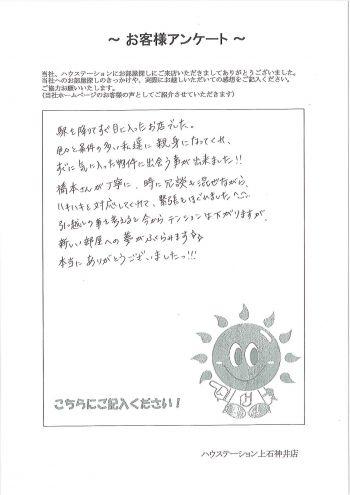 ～ お客様アンケート ～
当社、ハウステーションにお部屋探しにご来店いただきましてありがとうございました。
当社へのお部屋探しのきっかけや、実際にお越しいただいての感想をご記入ください。
ご協力お願いいたします。
(当社ホームページのお客様の声としてご紹介させていただきます)
駅を降りてすぐ目に入ったお店でした。
色々条件の多い私達に親身になってくれ、
すぐに気に入った物件に出会う事が出来ました!!
橋本さんが丁寧に、時に冗談も混ぜながら、
ハキハキと対応してくれて、緊張もほぐれました
引っ越しの事を考えると今からテンションは下がりますが、
新しい部屋への夢がふくらみます☆☆
本当にありがとうございましたっ!!!
こちらにご記入ください！
ハウステーション上石神井店